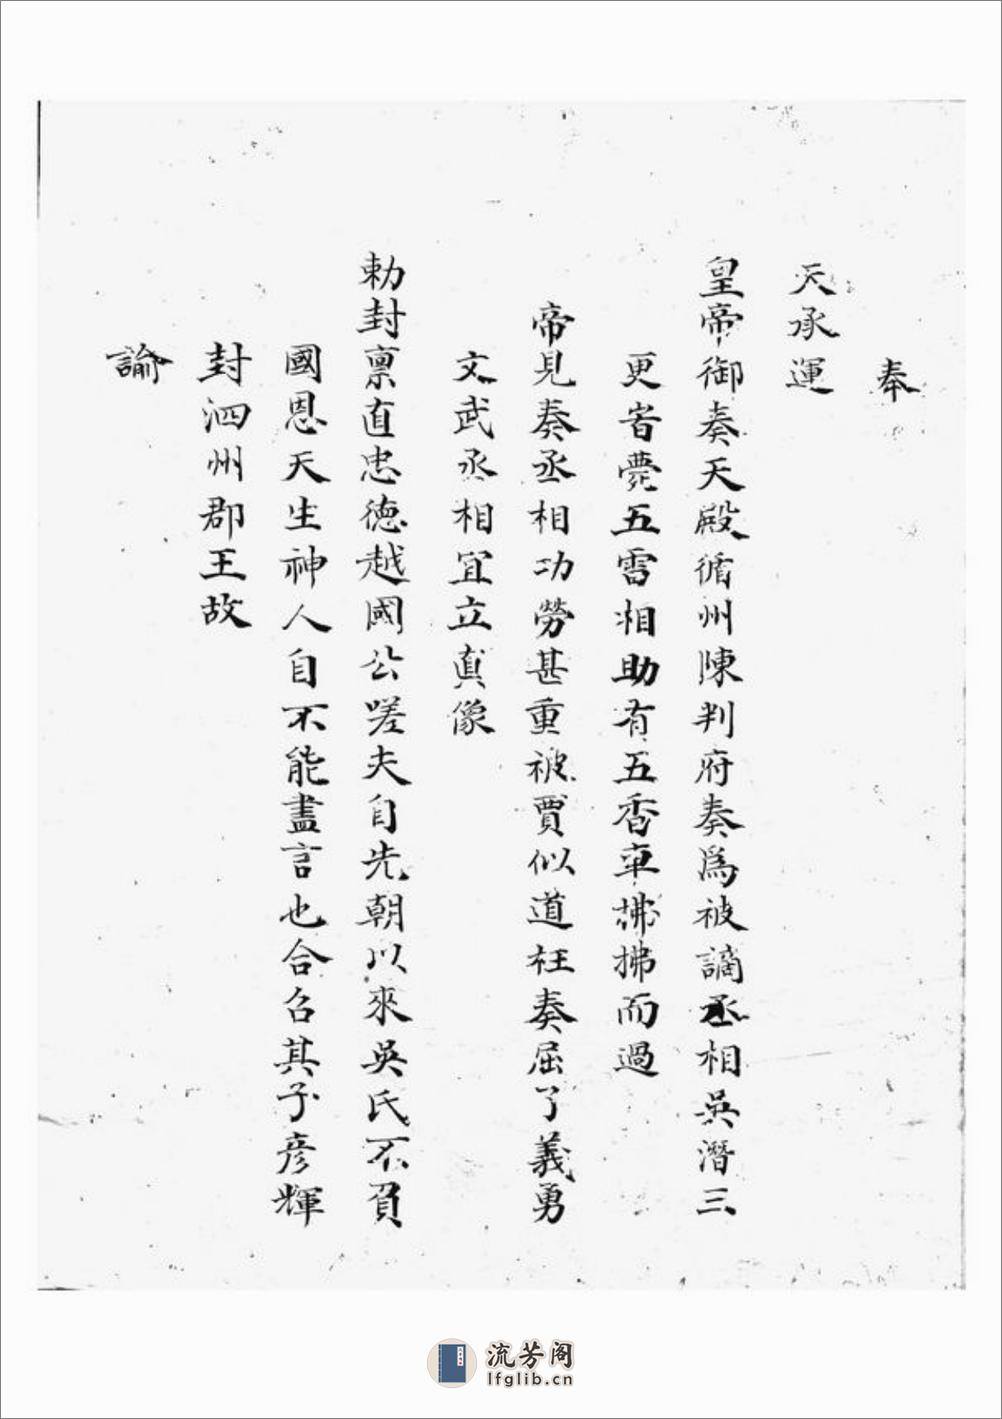 奉
天承運
皇帝御奏天殿循州陳判府奏為被謫丞相吳潛三
更省薨五雷相助有五香車拂拂而過
帝見奏丞相功勞甚重被賈似道枉奏屈了義勇
文武丞相宜立真像
勅封禀直忠德越國公嗟夫自先朝以來吳氏不負
國恩天生神人自不能盡言也合召其子彥輝
封泗州郡王故
諭
流芳阁
lfglib.cn